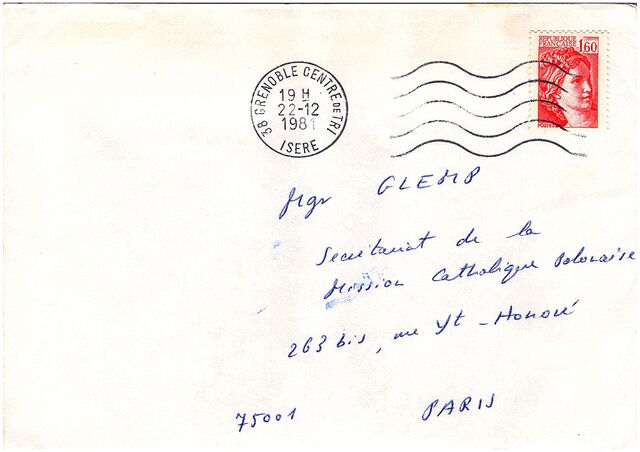 REPUBLIQUE
FRANCAISE
1,60
38 GRENOBLE CENTRE DE TRI
19 H
22-12
1981
ISERE
Mgr GLEMP
Secrétariat de la
Mission Catholique Polonaise
263 bis, rue St-Honoré
75001 PARIS